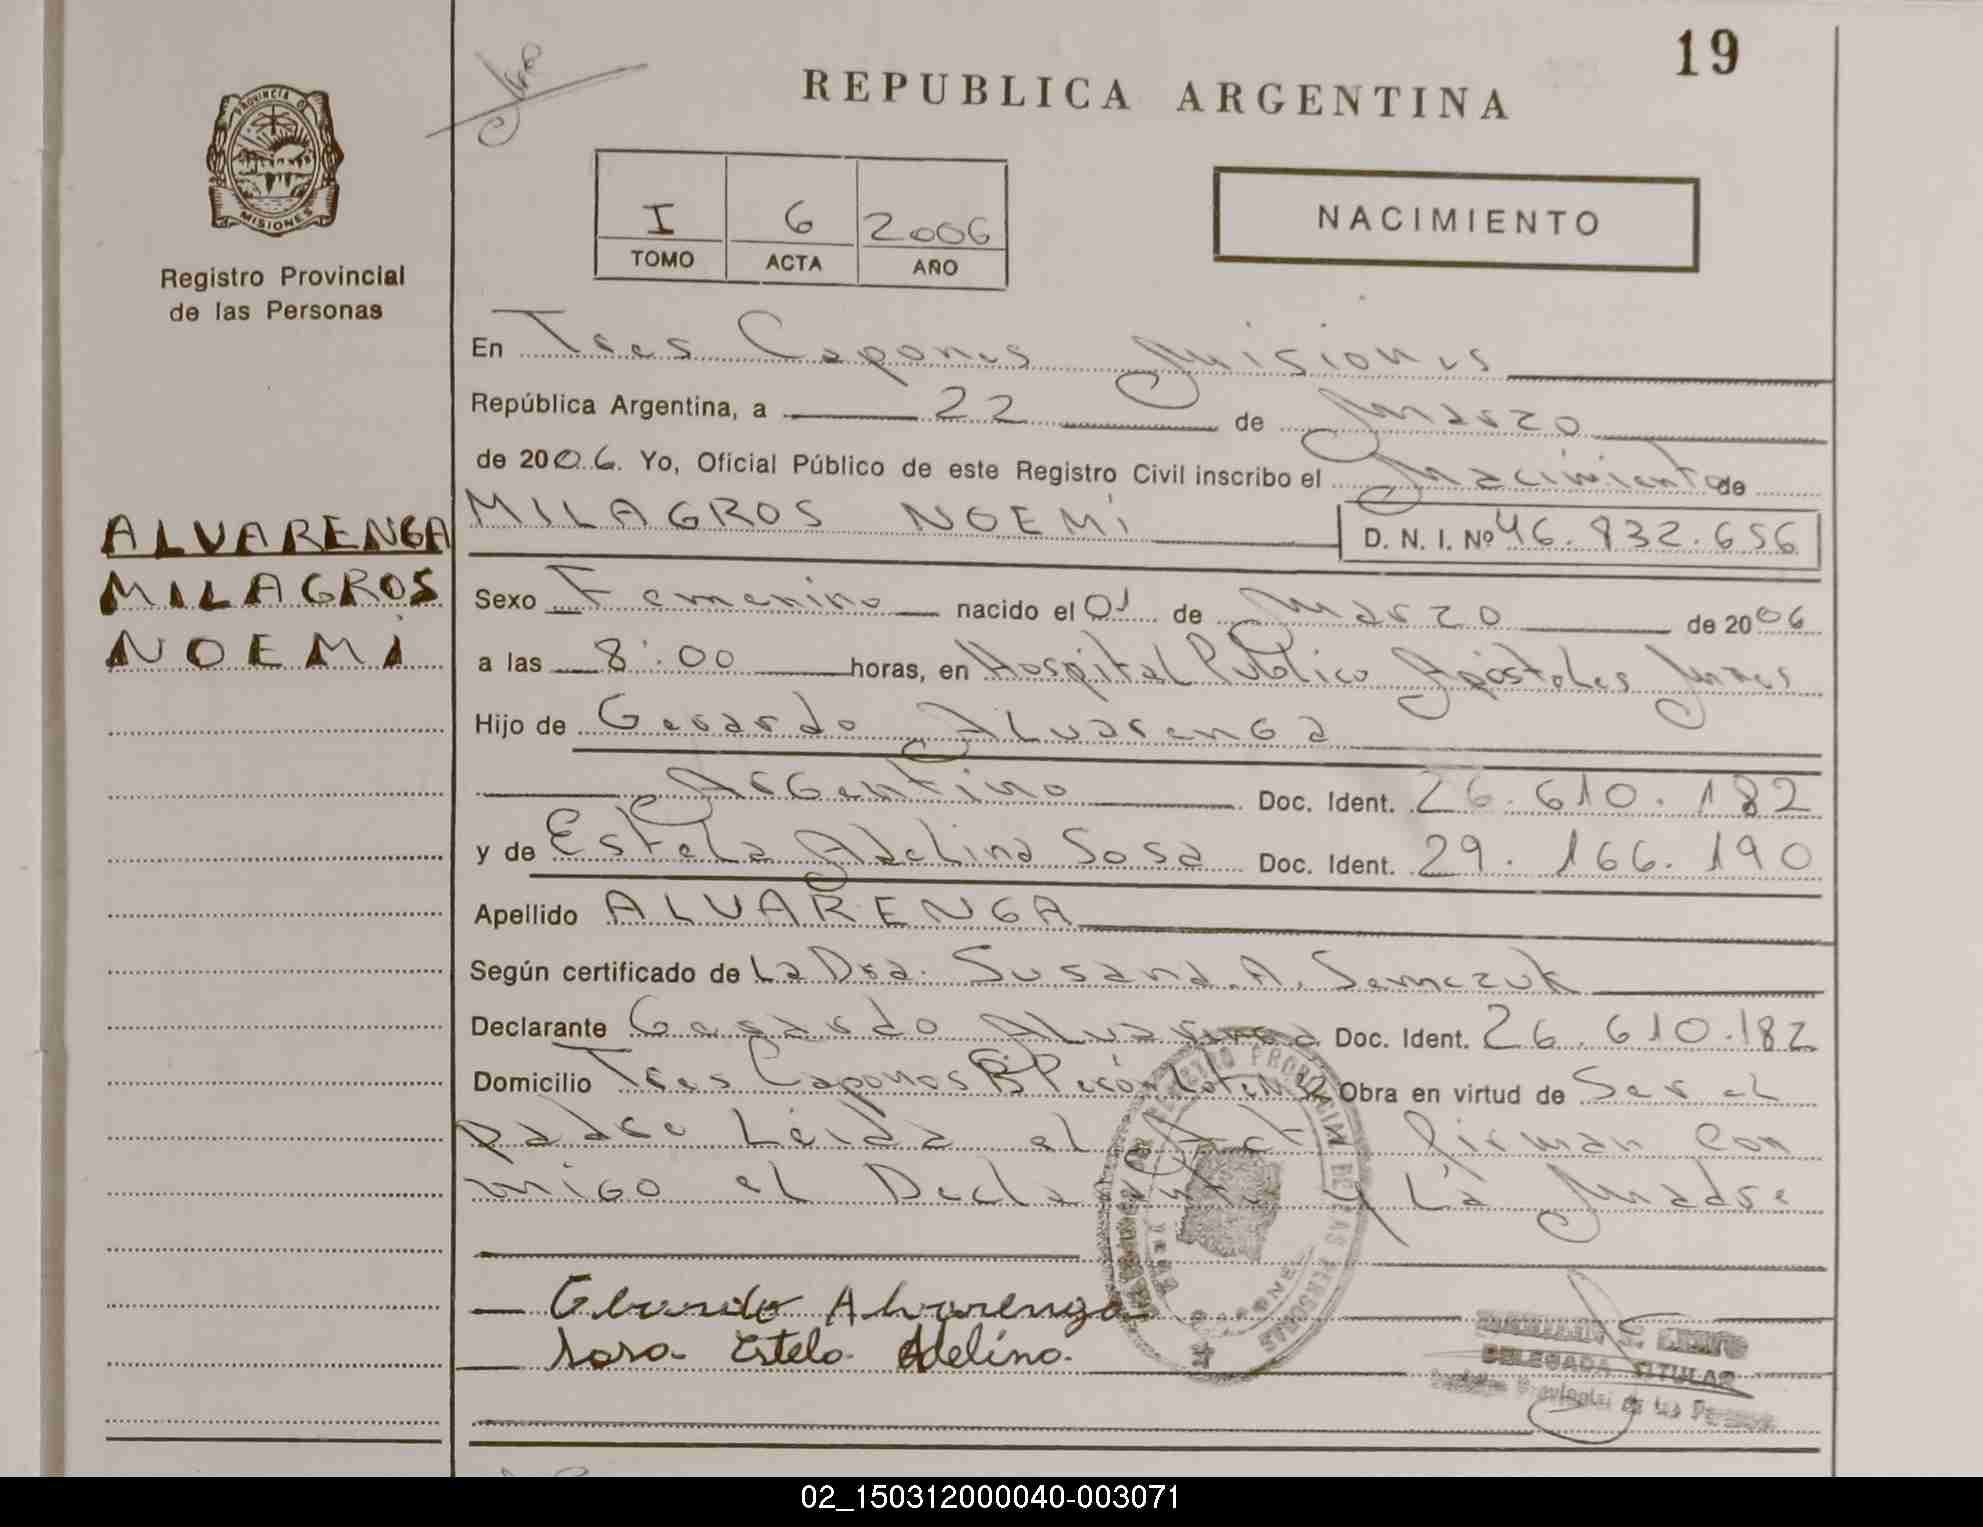 19
REPUBLICA ARGENTINA
PROVINCIA D
MISIONES
Registro Provincial
de las Personas
I 6 2006
TOMO ACTA AÑO
NACIMIENTO
En Tres Capones Misiones
República Argentina, a 22 de Marzo
de 2006. Yo, Oficial Público de este Registro Civil inscribo el Nacimiento de
MILAGROS NOEMÍ D. N. I. Nº 46.832.656
ALVARENGA
MILAGROS
NOEMÍ
Sexo Femenino nacido el 01 de Marzo de 2006
a las 8:00 horas, en Hospital Publico Apóstoles Mnes
Hijo de Gerardo Alvarenga
Argentino Doc. Ident. 26.610.182
y de Estela Adelina Sosa Doc. Ident. 29.166.190
Apellido ALVARENGA
Según certificado de La Dra. Susana A. Semczuk
Declarante Gerardo Alvarenga Doc. Ident. 26.610.182
Domicilio Tres Capones Bº Perón Lote Obra en virtud de Ser el
padre Leída el Acta firman con
migo el Decla y La Madre
REGISTRO PROVINCIAL DE LAS PERSONAS
Gerardo Alvarenga
Sosa Estela Adelina.
DELEGADA TITULAR
Registro Provincial de las Personas
02_150312000040-003071